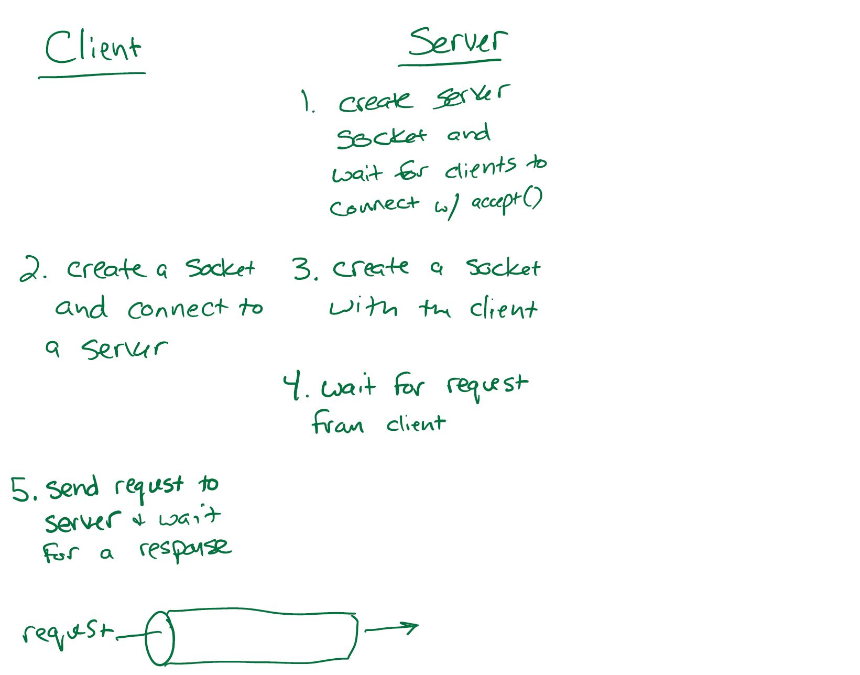 Client
Server
1. create server
socket and
wait for clients to
connect w/ accept()
2. create a socket
and connect to
a server
3. create a socket
with the client
4. wait for request
from client
5. send request to
server & wait
for a response
request